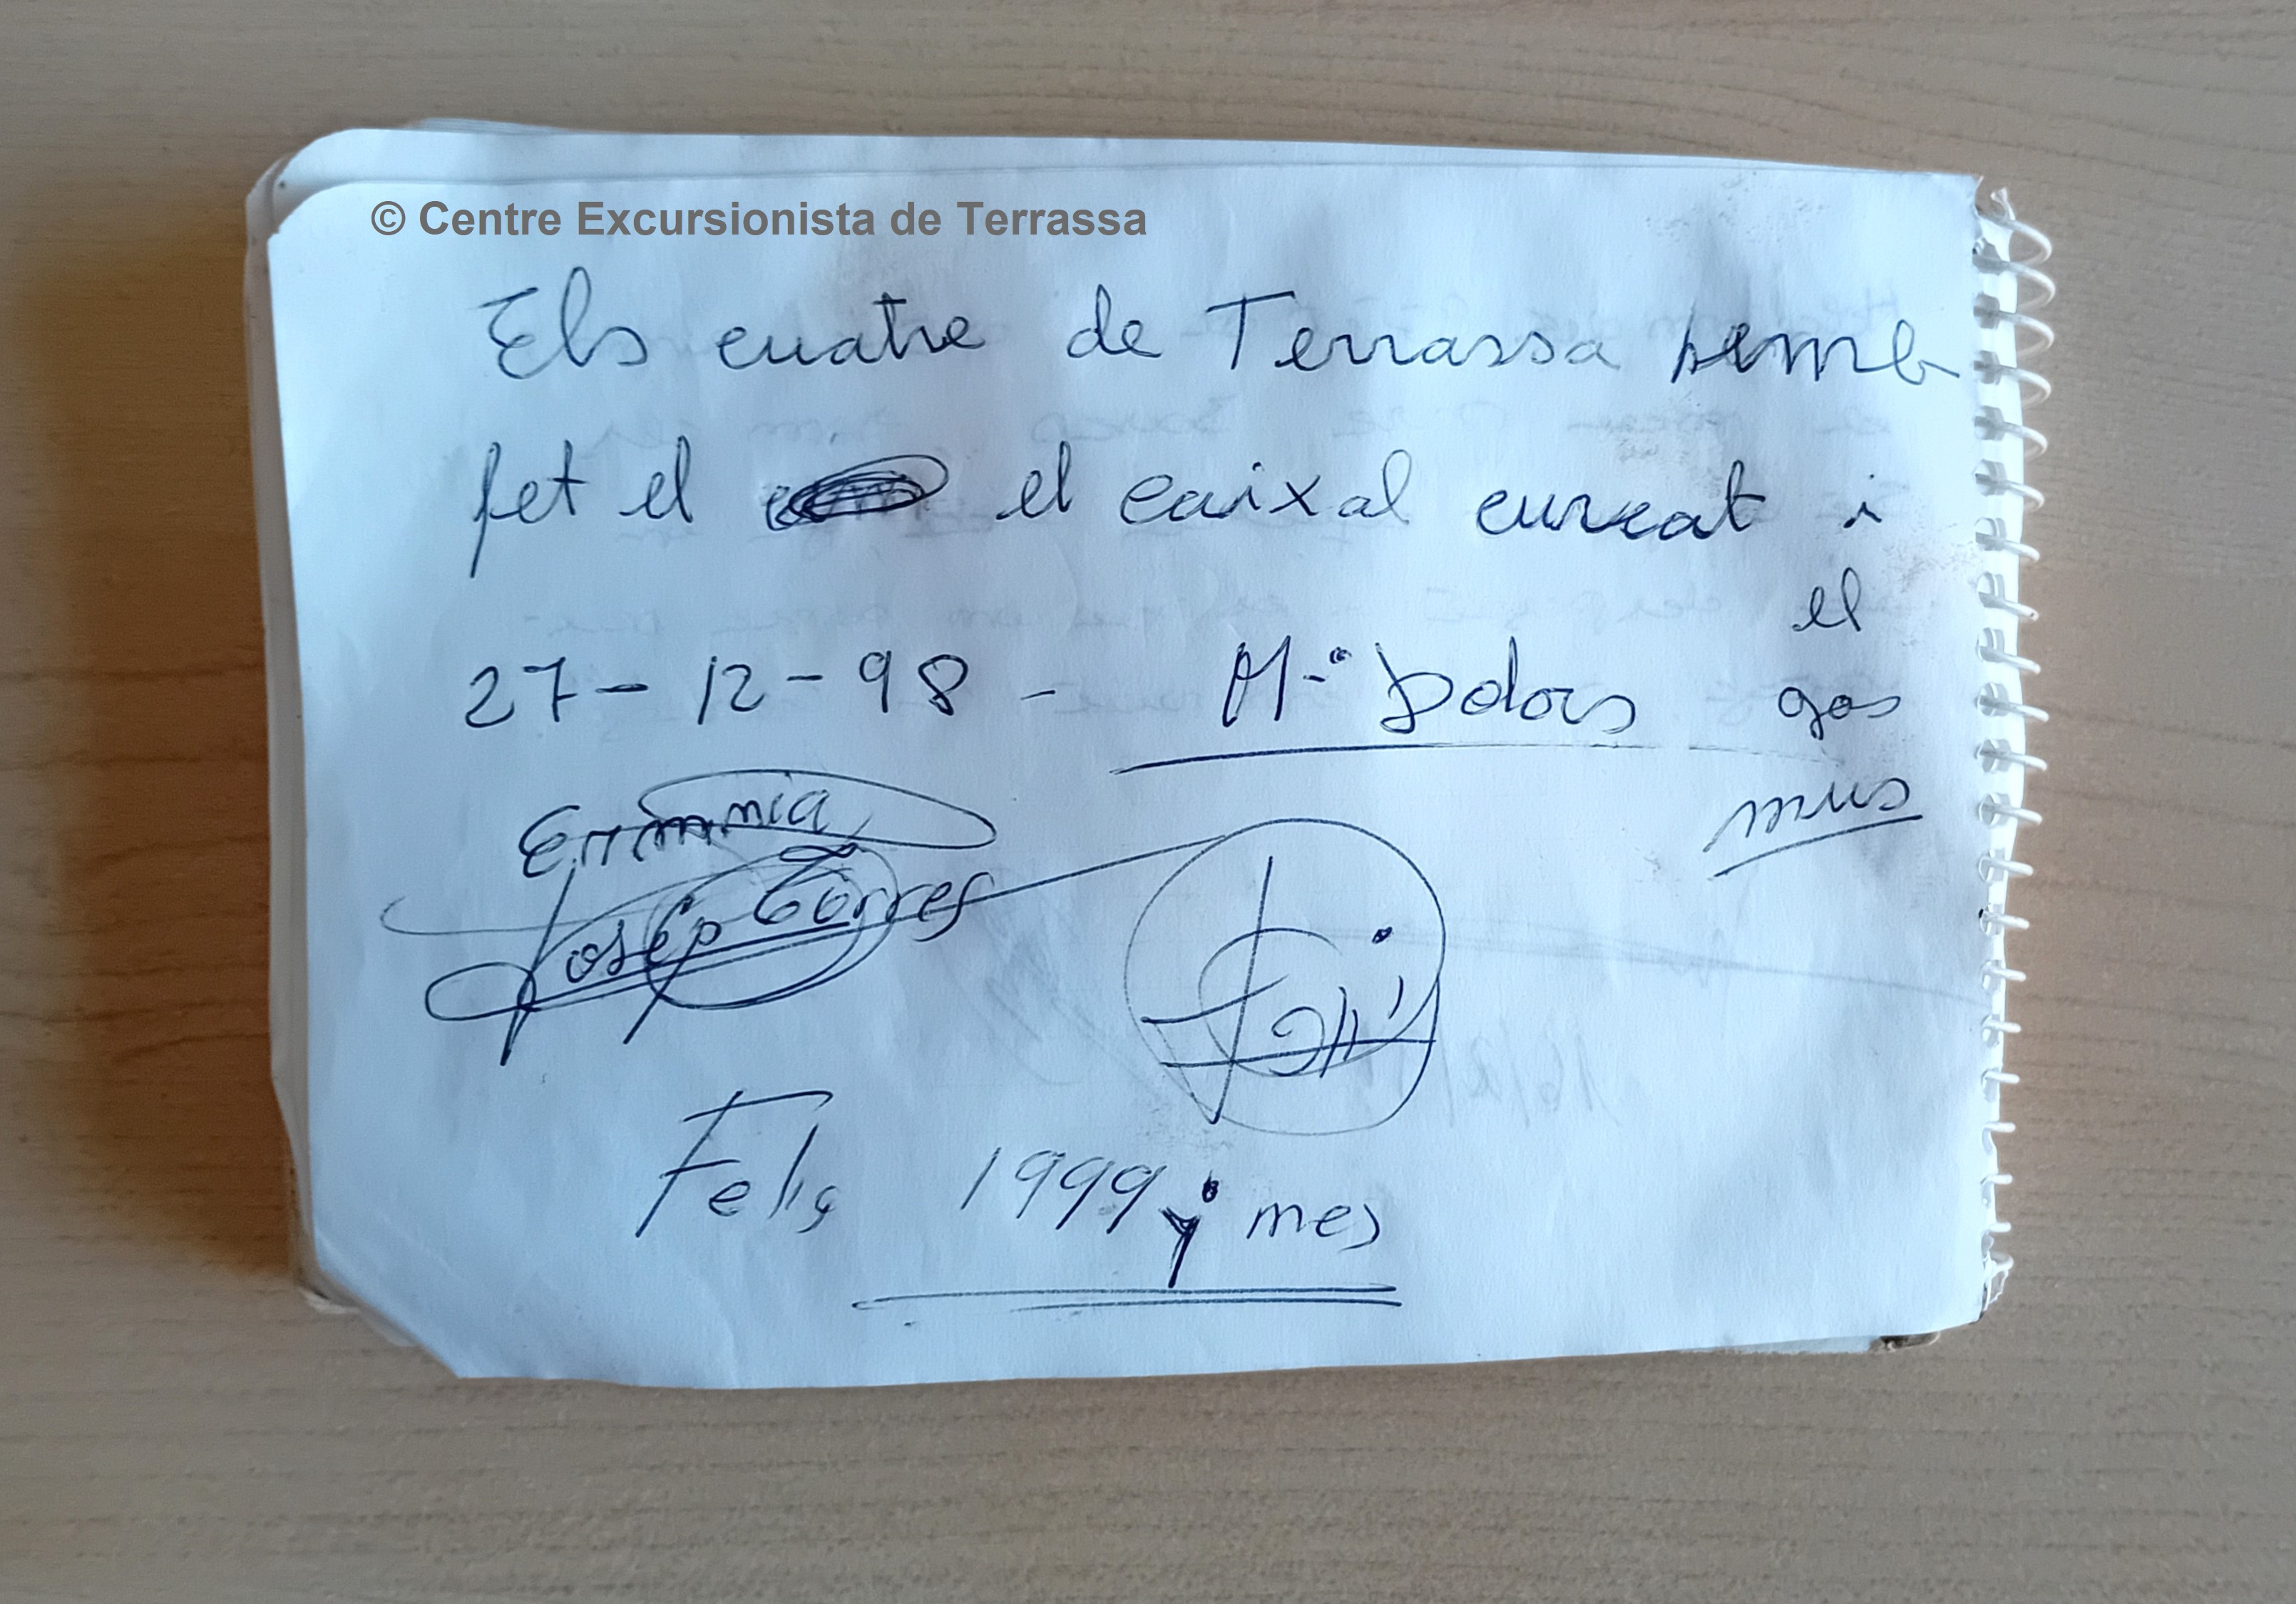 © Centre Excursionista de Terrassa
Els cuatre de Terrassa
fet el el caixal curcat i
el
27-12-98- Mª Dolors gos
mus
Erminia
Josep Torres
Toñi
Feliç 1999 y mes